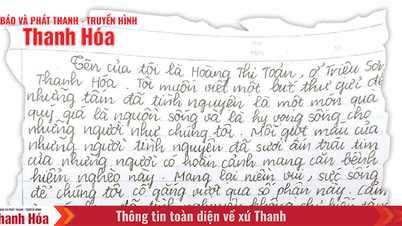 BÁO VÀ PHÁT THANH - TRUYỀN HÌNH
Thanh Hóa
Tên của tôi là Hoàng Thị Toản, ở Triệu Sơn
Thanh Hóa. Tôi muốn viết một bức thư gửi đế
những tấm đã tình nguyện là một món quà
quý giá là nguồn sống và là hy vọng sống cho
những người như chúng tôi. Mỗi giọt máu của
những người tình nguyện đã sưởi ấm trái tim
của những người có hoàn cảnh mang căn bệnh
hiểm nghèo này. Mang lại niềm vui, sức sống
để chúng tôi cố gắng vượt qua số phận này. Cảm
BÁO VÀ PHÁT THANH - TRUYỀN HÌNH
Thanh Hóa
Thông tin toàn diện về xứ Thanh